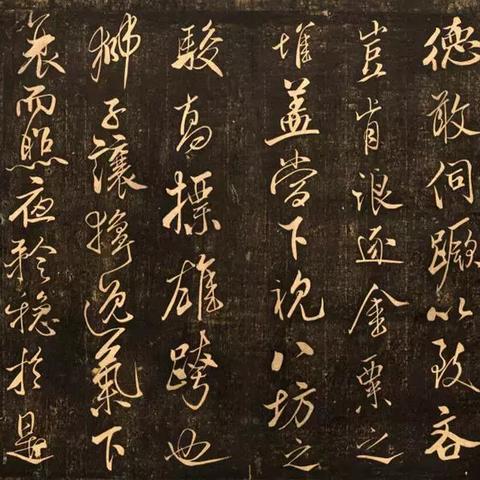 德敢伺蹶以致吝
豈肯浪逐金粟之
堆盖當下視八坊之
駿高摽雄跨也
獅子讓獰逸氣下
衰而照夜矜穩於是